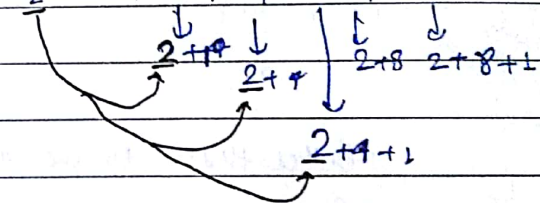 2+1 2+4 2+8 2+8+1
2+4+1